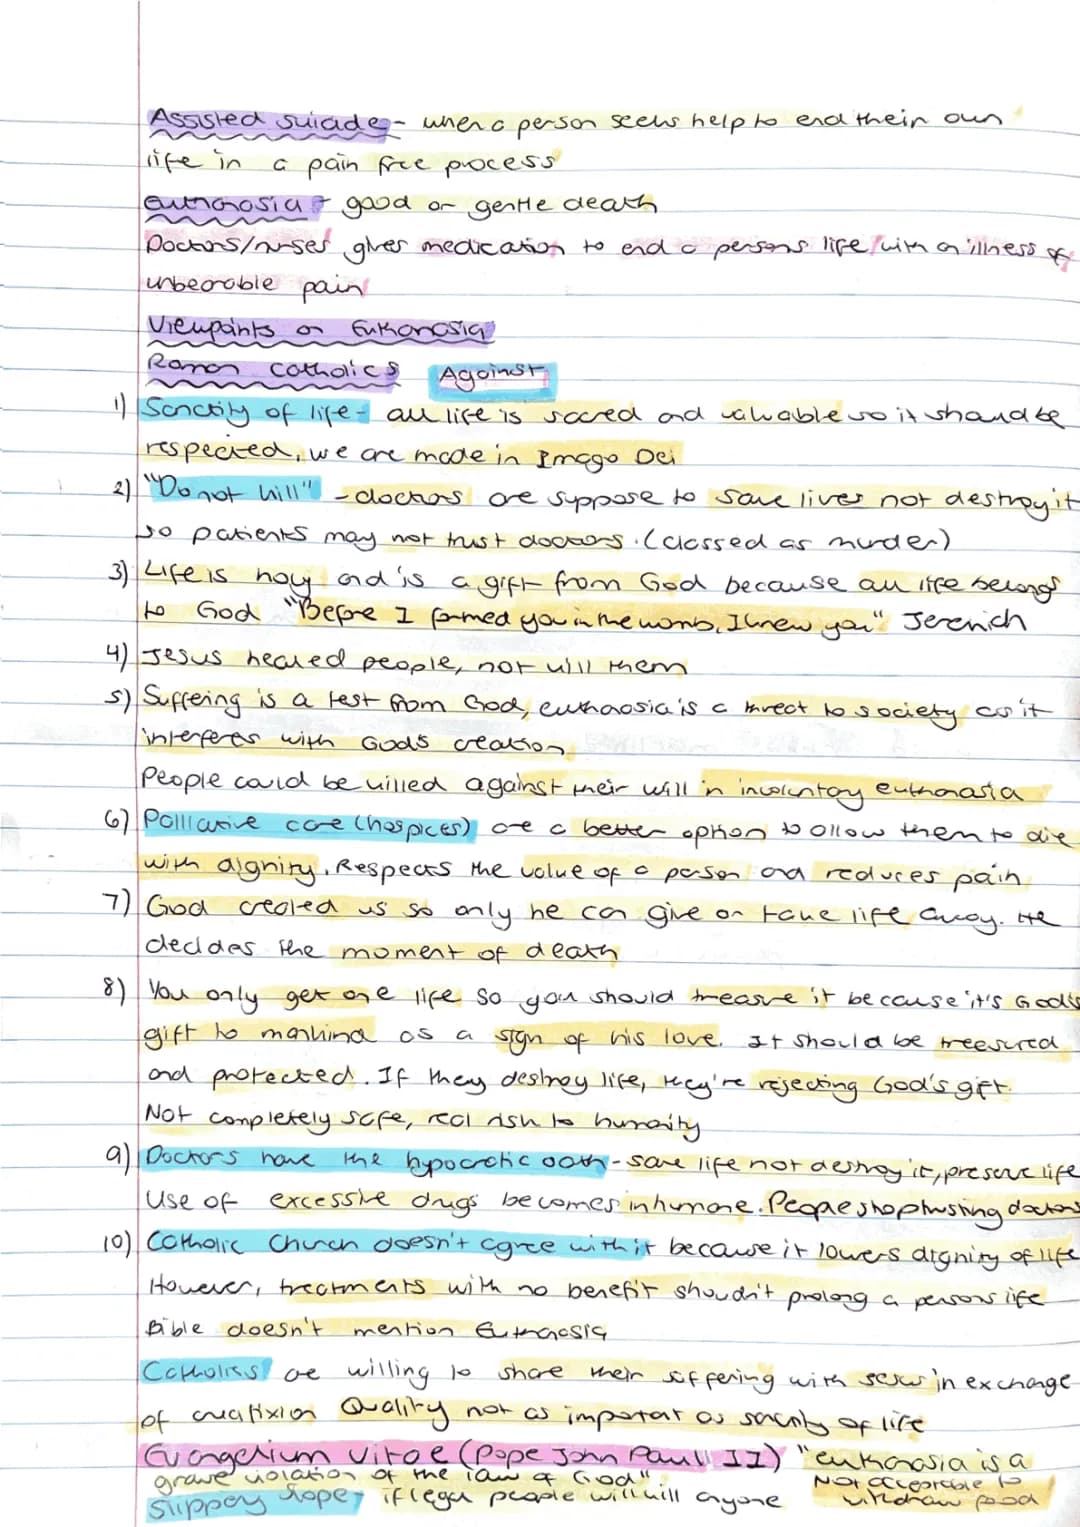 Assisted suicide - when a person seeks help to end their own
life in a pain free process
Euthanasia - good or gentle death
Doctors/nurses gives medication to end a persons life/with a illness or
unbearable pain
Viewpoints on Euthanasia
Roman Catholics Against
1) Sanctity of life - all life is sacred and valuable so it should be
respected, we are made in Imago Dei
2) "Do not kill" - doctors are suppose to save lives not destroy it
so patients may not trust doctors. (classed as murder)
3) Life is holy and is a gift from God because all life belongs
to God "Before I formed you in the womb, I knew you" Jeremiah
4) Jesus healed people, not kill them
5) Suffering is a test from God, euthanasia is a threat to society as it
interferes with God's creation
People could be killed against their will in involuntary euthanasia
6) Palliative care (hospices) are a better option to allow them to die
with dignity. Respects the value of a person and reduces pain
7) God created us so only he can give or take life away. He
decides the moment of death
8) You only get one life so you should treasure it because it's God's
gift to mankind as a sign of his love. It should be treasured
and protected. If they destroy life, they're rejecting God's gift.
Not completely safe, real risk to humanity
9) Doctors have the hypocratic oath - save life not destroy it, preserve life
Use of excessive drugs becomes inhumane. People stop trusting doctors
10) Catholic Church doesn't agree with it because it lowers dignity of life
However, treatments with no benefit shouldn't prolong a persons life
Bible doesn't mention Euthanasia
Catholics are willing to share their suffering with Jesus in exchange
of crucifixion Quality not as important as sanctity of life
Evangelium Vitae (Pope John Paul II) "euthanasia is a
grave violation of the law of God" Not acceptable to
Slippery slope - if legal people will kill anyone withdraw food